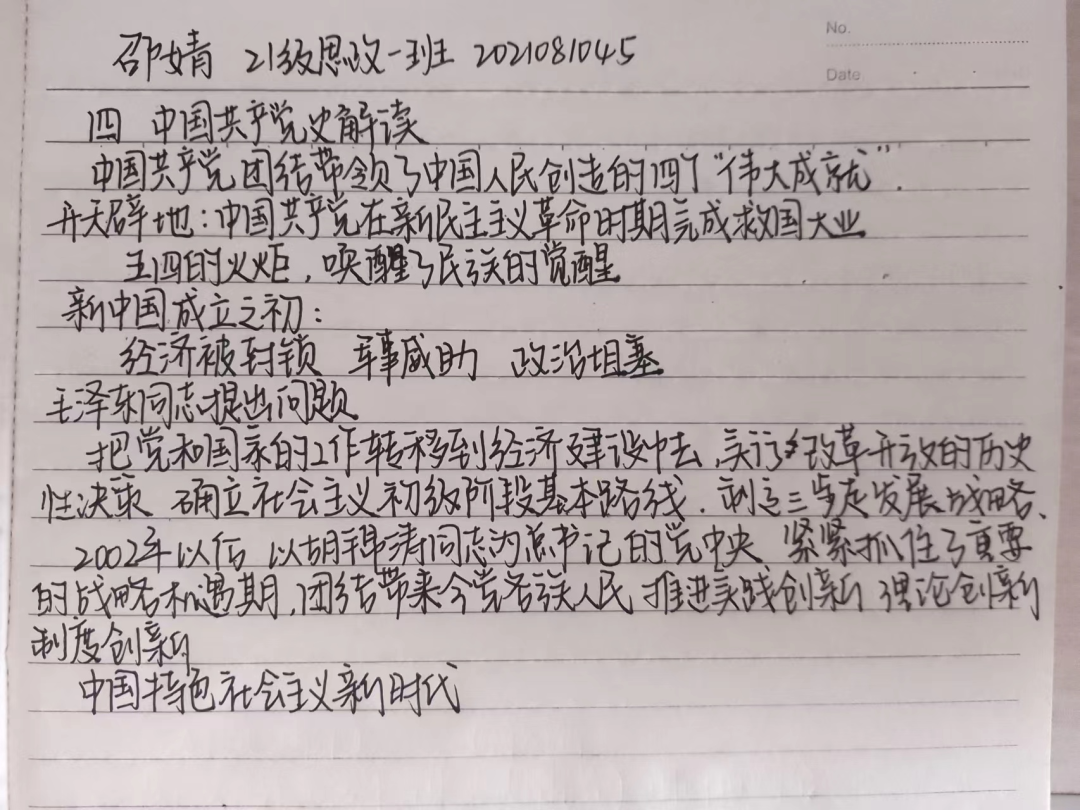 No.
Date
邵婧 21级思政一班 2021081045
四 中国共产党史解读
中国共产党团结带领了中国人民创造的四个“伟大成就”.
开天辟地:中国共产党在新民主主义革命时期完成救国大业
五四的火炬,唤醒了民族的觉醒
新中国成立之初:
经济被封锁 军事威助 政治阻塞
毛泽东同志提出问题
把党和国家的工作转移到经济建设中去,实行改革开放的历史
性决策 确立社会主义初级阶段基本路线.制定三步走发展战略、
2002年以后 以胡锦涛同志为总书记的党中央 紧紧抓住了重要
的战略机遇期,团结带来今党各族人民 推进实践创新 理论创新
制度创新
中国特色社会主义新时代